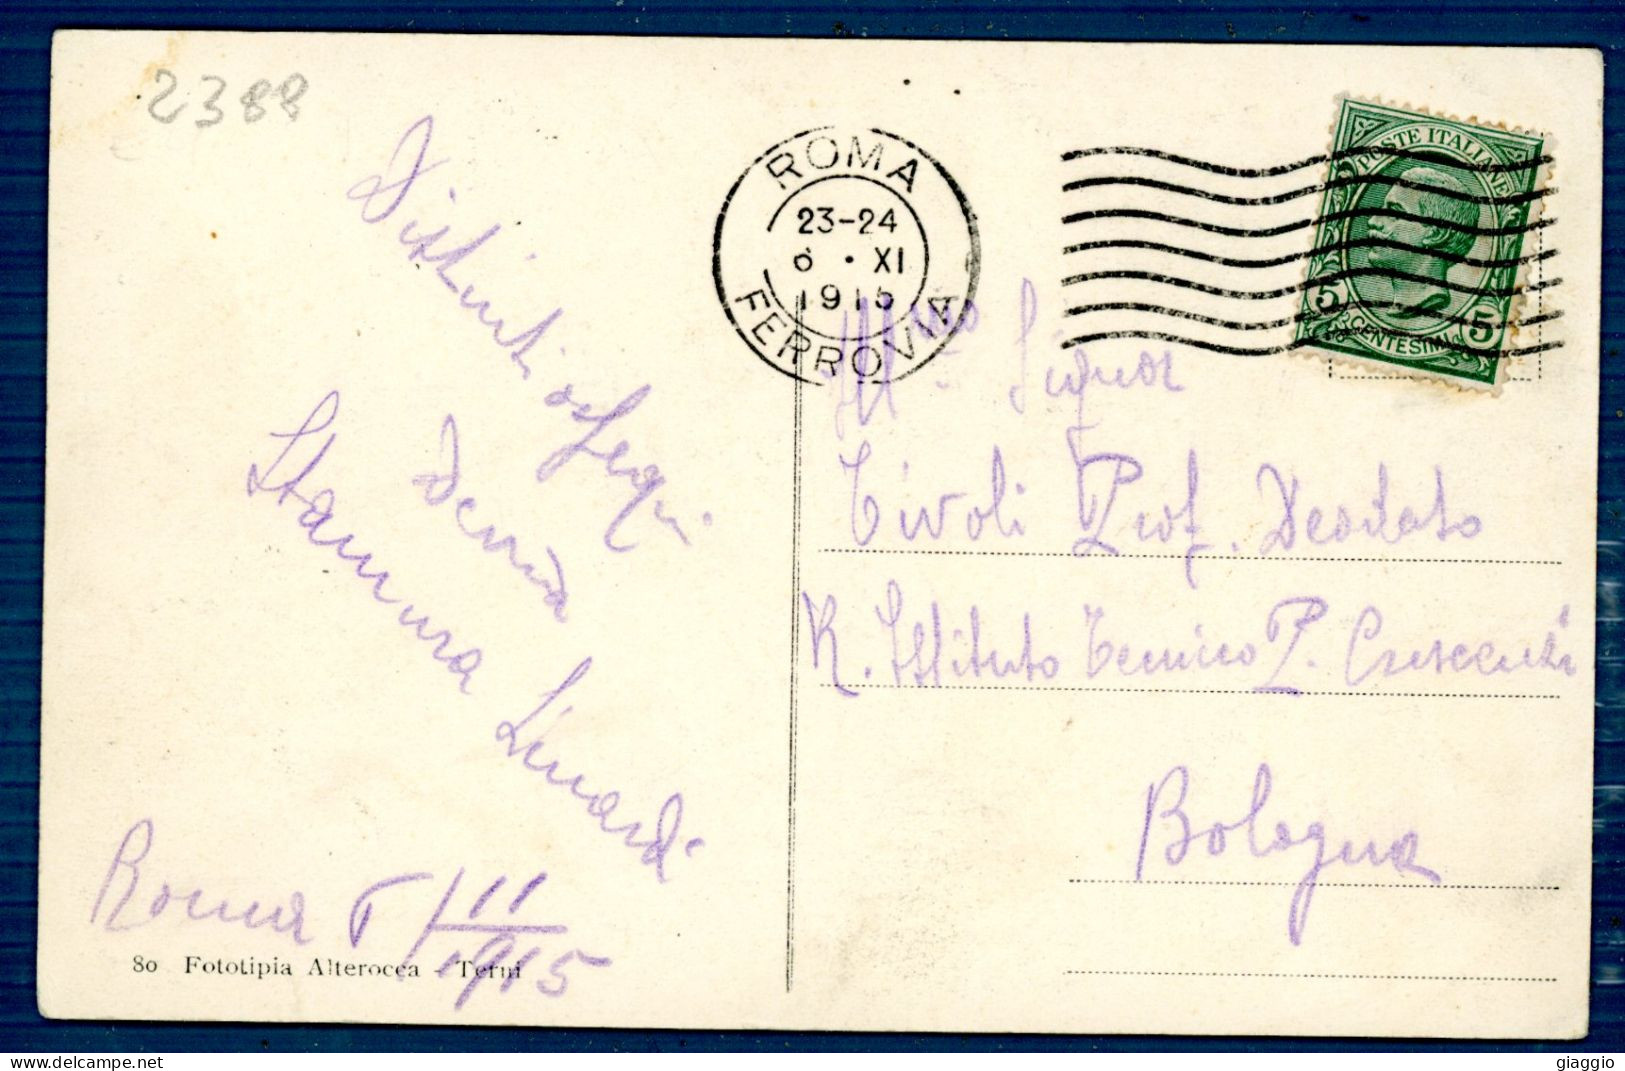 2388
Distinti ossequi
Stamura Linardi
Roma 6/11
1915
80 Fototipia Alterocca - Terni
ROMA
23-24
6 · XI
1915
FERROVIA
POSTE ITALIANE
5 CENTESIMI 5
Ill.mo Signor
Tivoli Prof. Deodato
R. Istituto Tecnico P. Crescenzi
Bologna
giaggio